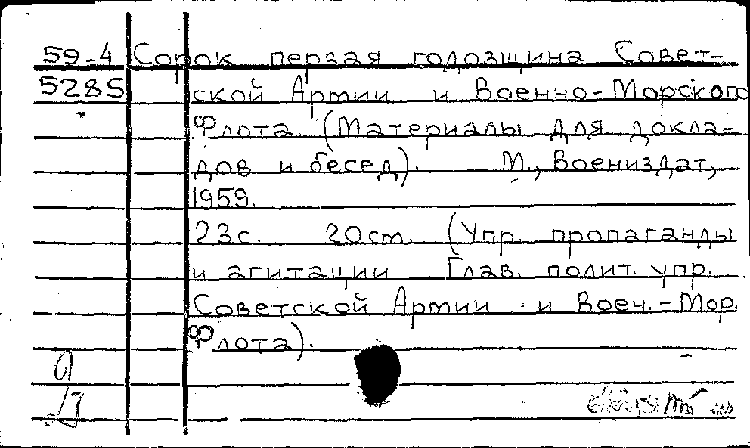 59-4 Сорок первая годовщина Совет-
5285 ской Армии и Военно-Морского
Флота (Материалы для докла-
дов и бесед). М., Воениздат,
1959.
23с. 20см. (Упр. пропаганды
и агитации Глав. полит. упр.
Советской Армии и Воен.-Мор.
Флота).